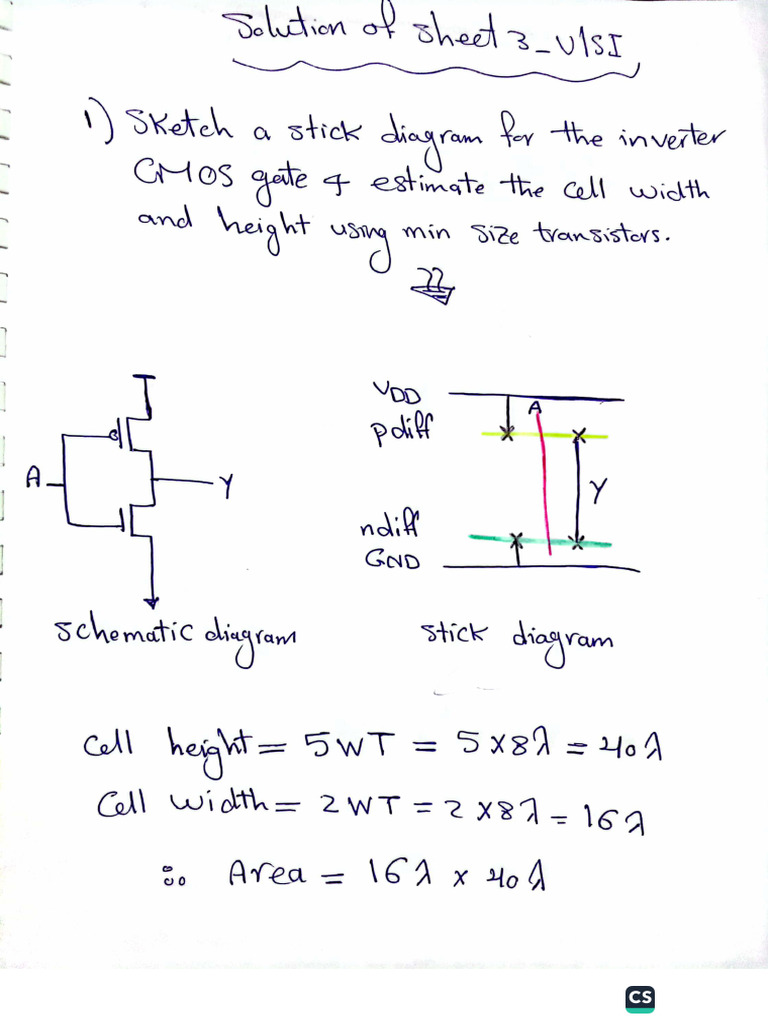 Solution of sheet 3_VlSI
1) Sketch a stick diagram for the inverter
CMOS gate & estimate the cell width
and height using min size transistors.
??
A
Y
Schematic diagram
VDD
pdiff
A
Y
ndiff
GND
stick diagram
Cell height = 5WT = 5×8λ = 40λ
Cell width = 2WT = 2×8λ = 16λ
∴ Area = 16λ × 40λ
CS